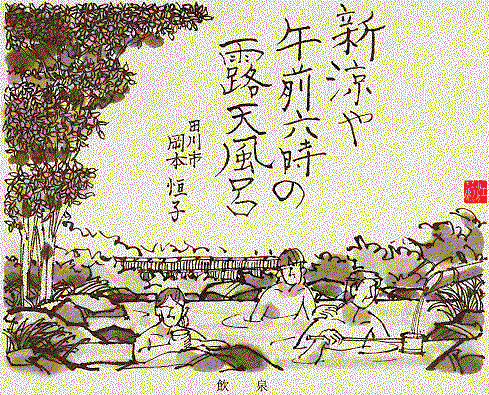 新涼や
午前六時の
露天風呂
田川市
岡本恒子
飲泉